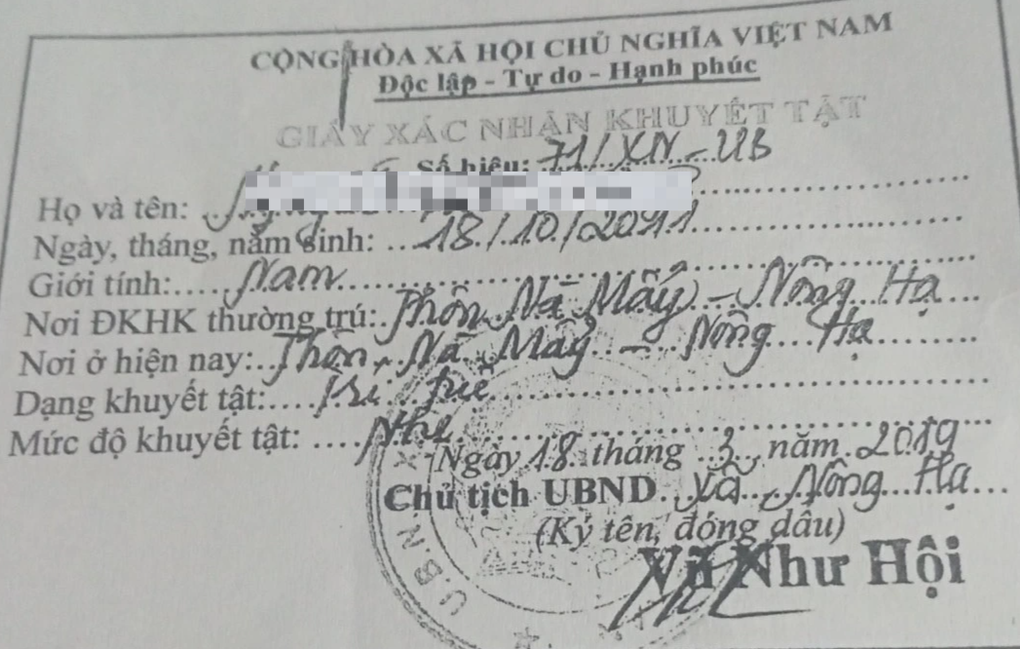 CỘNG HÒA XÃ HỘI CHỦ NGHĨA VIỆT NAM
Độc lập - Tự do - Hạnh phúc
GIẤY XÁC NHẬN KHUYẾT TẬT
Số hiệu: 71/XN-UB
Họ và tên:
Ngày, tháng, năm sinh: 18/10/2011
Giới tính: Nam
Nơi ĐKHK thường trú: Thôn Nà Mẩy - Nông Hạ
Nơi ở hiện nay: Thôn Nà Mẩy - Nông Hạ
Dạng khuyết tật: Trí tuệ
Mức độ khuyết tật: Nhẹ
Ngày 18 tháng 3 năm 2019
Chủ tịch UBND xã Nông Hạ
(Ký tên, đóng dấu)
Vũ Như Hội
U.B.N